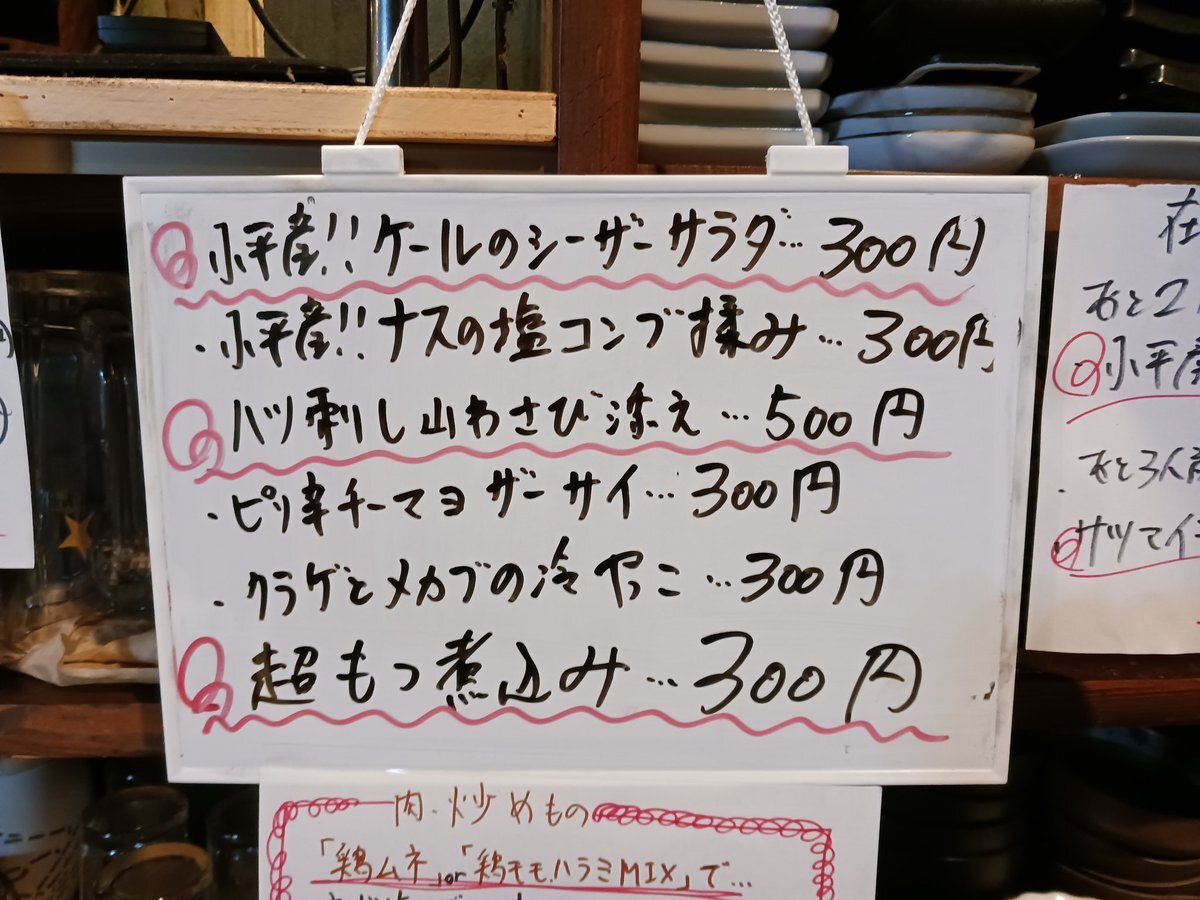 小平産!!ケールのシーザーサラダ…300円
・小平産!!ナスの塩コンブ揉み…300円
ハツ刺し山わさび添え…500円
・ピリ辛チーマヨザーサイ…300円
・クラゲとメカブの冷やっこ…300円
超もつ煮込み…300円
肉・炒めもの
「鶏ムネ」or「鶏モモ、ハラミMIX」で…
在
あと2
小平産
・あと3人前
サツマイ